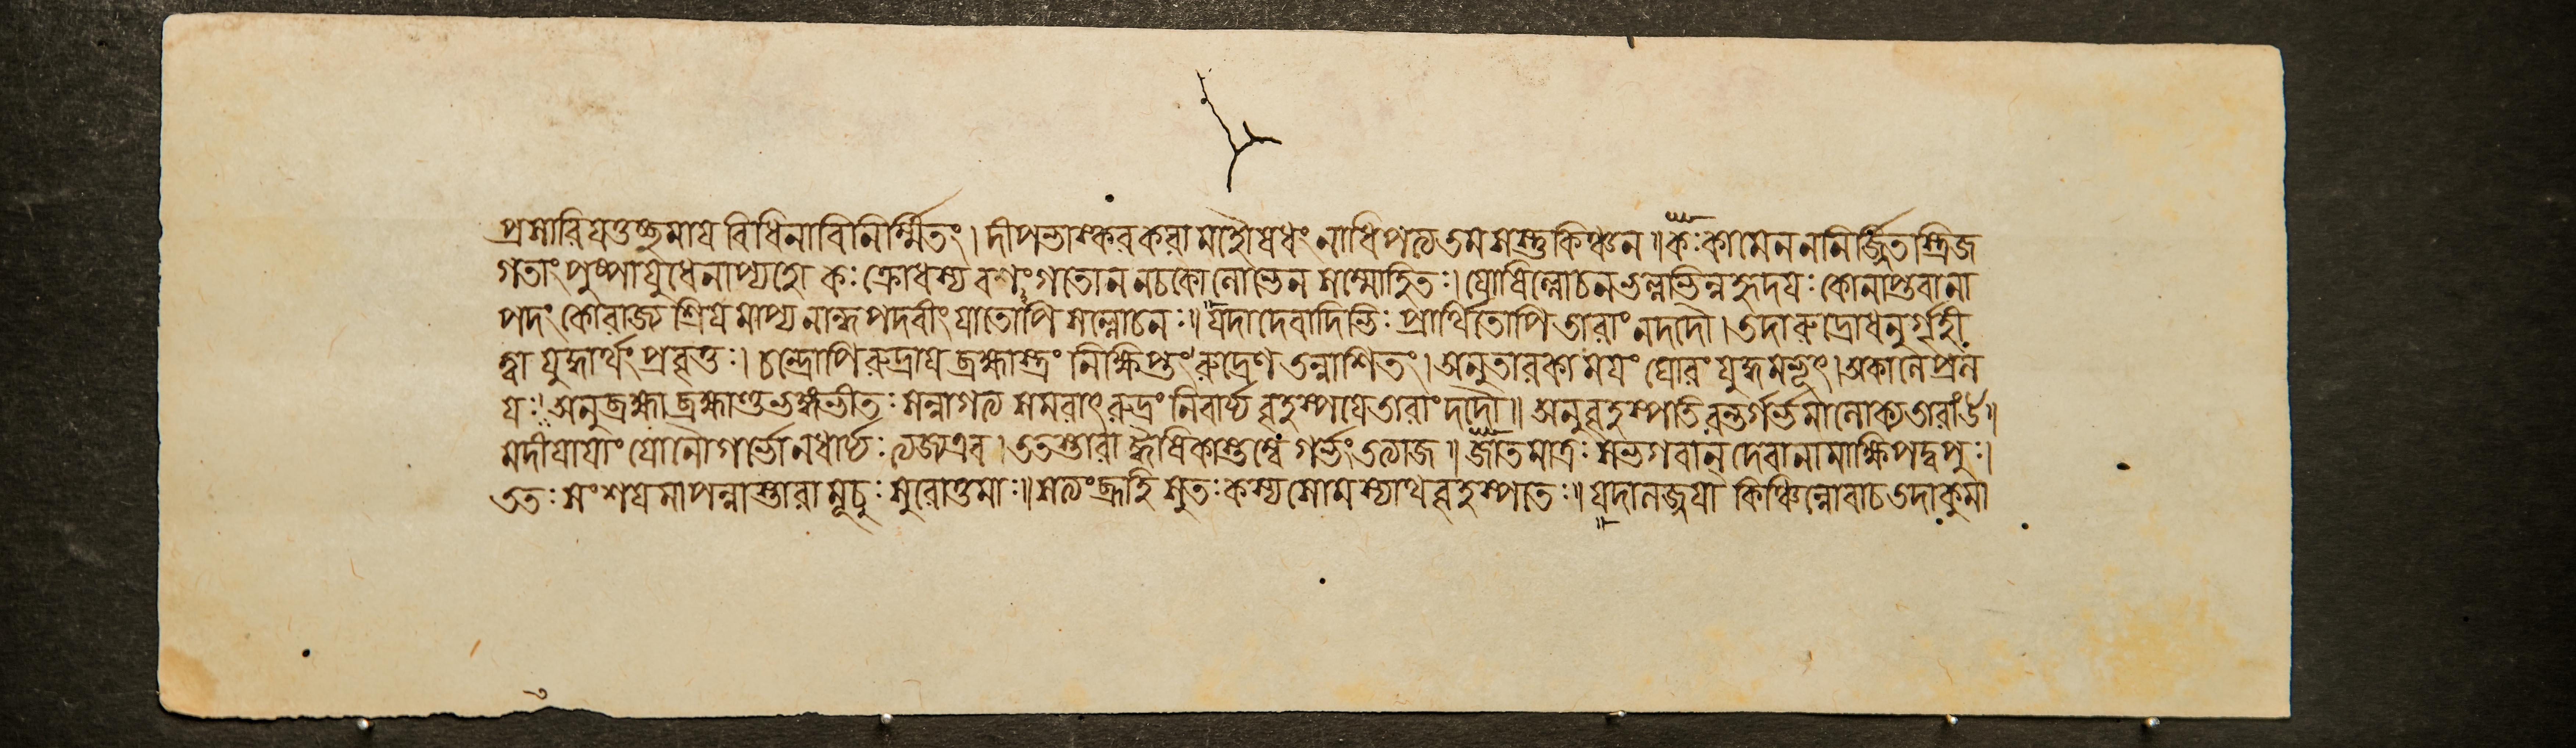 প্রসারিযত্তচ্ছমাযে বিধিনাবিনির্ম্মিতং। দীপন্তাস্করকরামহৌষধং নাধিপত্যতমসস্তুকিঞ্চন॥কঃকামেনননির্জ্জিতস্ত্রিজ
গতাংপুষ্পাযুধেনাপ্যহো কঃ ক্রোধস্য বশংগতোন নচকোলোভেন সম্মোহিতঃ। যোষিল্লোচনভল্লভিন্নহৃদযঃ কোনাপ্তবানা
পদং কোরাজ্য শ্রিযমাপ্য নান্ধপদবীং যাতোপি সল্লোচনঃ॥ যদাদেবাদিভিঃ প্রার্থিতোপি তারাং নদদৌ। তদারুদ্রোধনুর্গৃহী
ত্বা যুদ্ধার্থং প্রবৃত্তঃ। চন্দ্রোপিরুদ্রায ব্রহ্মাস্ত্রং নিক্ষিপ্তং রুদ্রেণ তন্নাশিতং। অনুতারকামযং ঘোরং যুদ্ধমভূৎ।অকালেপ্রল
যঃ। অনুব্রহ্মা ব্রহ্মাণ্ডভঙ্গভীতঃ সন্নাগত্য সমরাৎ রুদ্রং নিবার্য্য বৃহস্পতযেতারাং দদৌ॥ অনুবৃহস্পতিরন্তর্গর্ভমালোক্যতারাং
মদীযাযাং যোনৌগর্ভোনধার্য্যঃ ত্যজএব। ততস্তারা ইষীকাস্তম্বে গর্ভং তত্যাজ॥ জাতমাত্রঃ সভগবান্ দেবানামাক্ষিপদ্বপুঃ।
ততঃ সংশযমাপন্নাস্তারামূচুঃ সুরোত্তমাঃ॥সত্যংব্রূহি সুতঃ কস্য সোমস্যাথবৃহস্পতেঃ॥ যদালজ্জযা কিঞ্চিন্নোবাচতদাকুমা